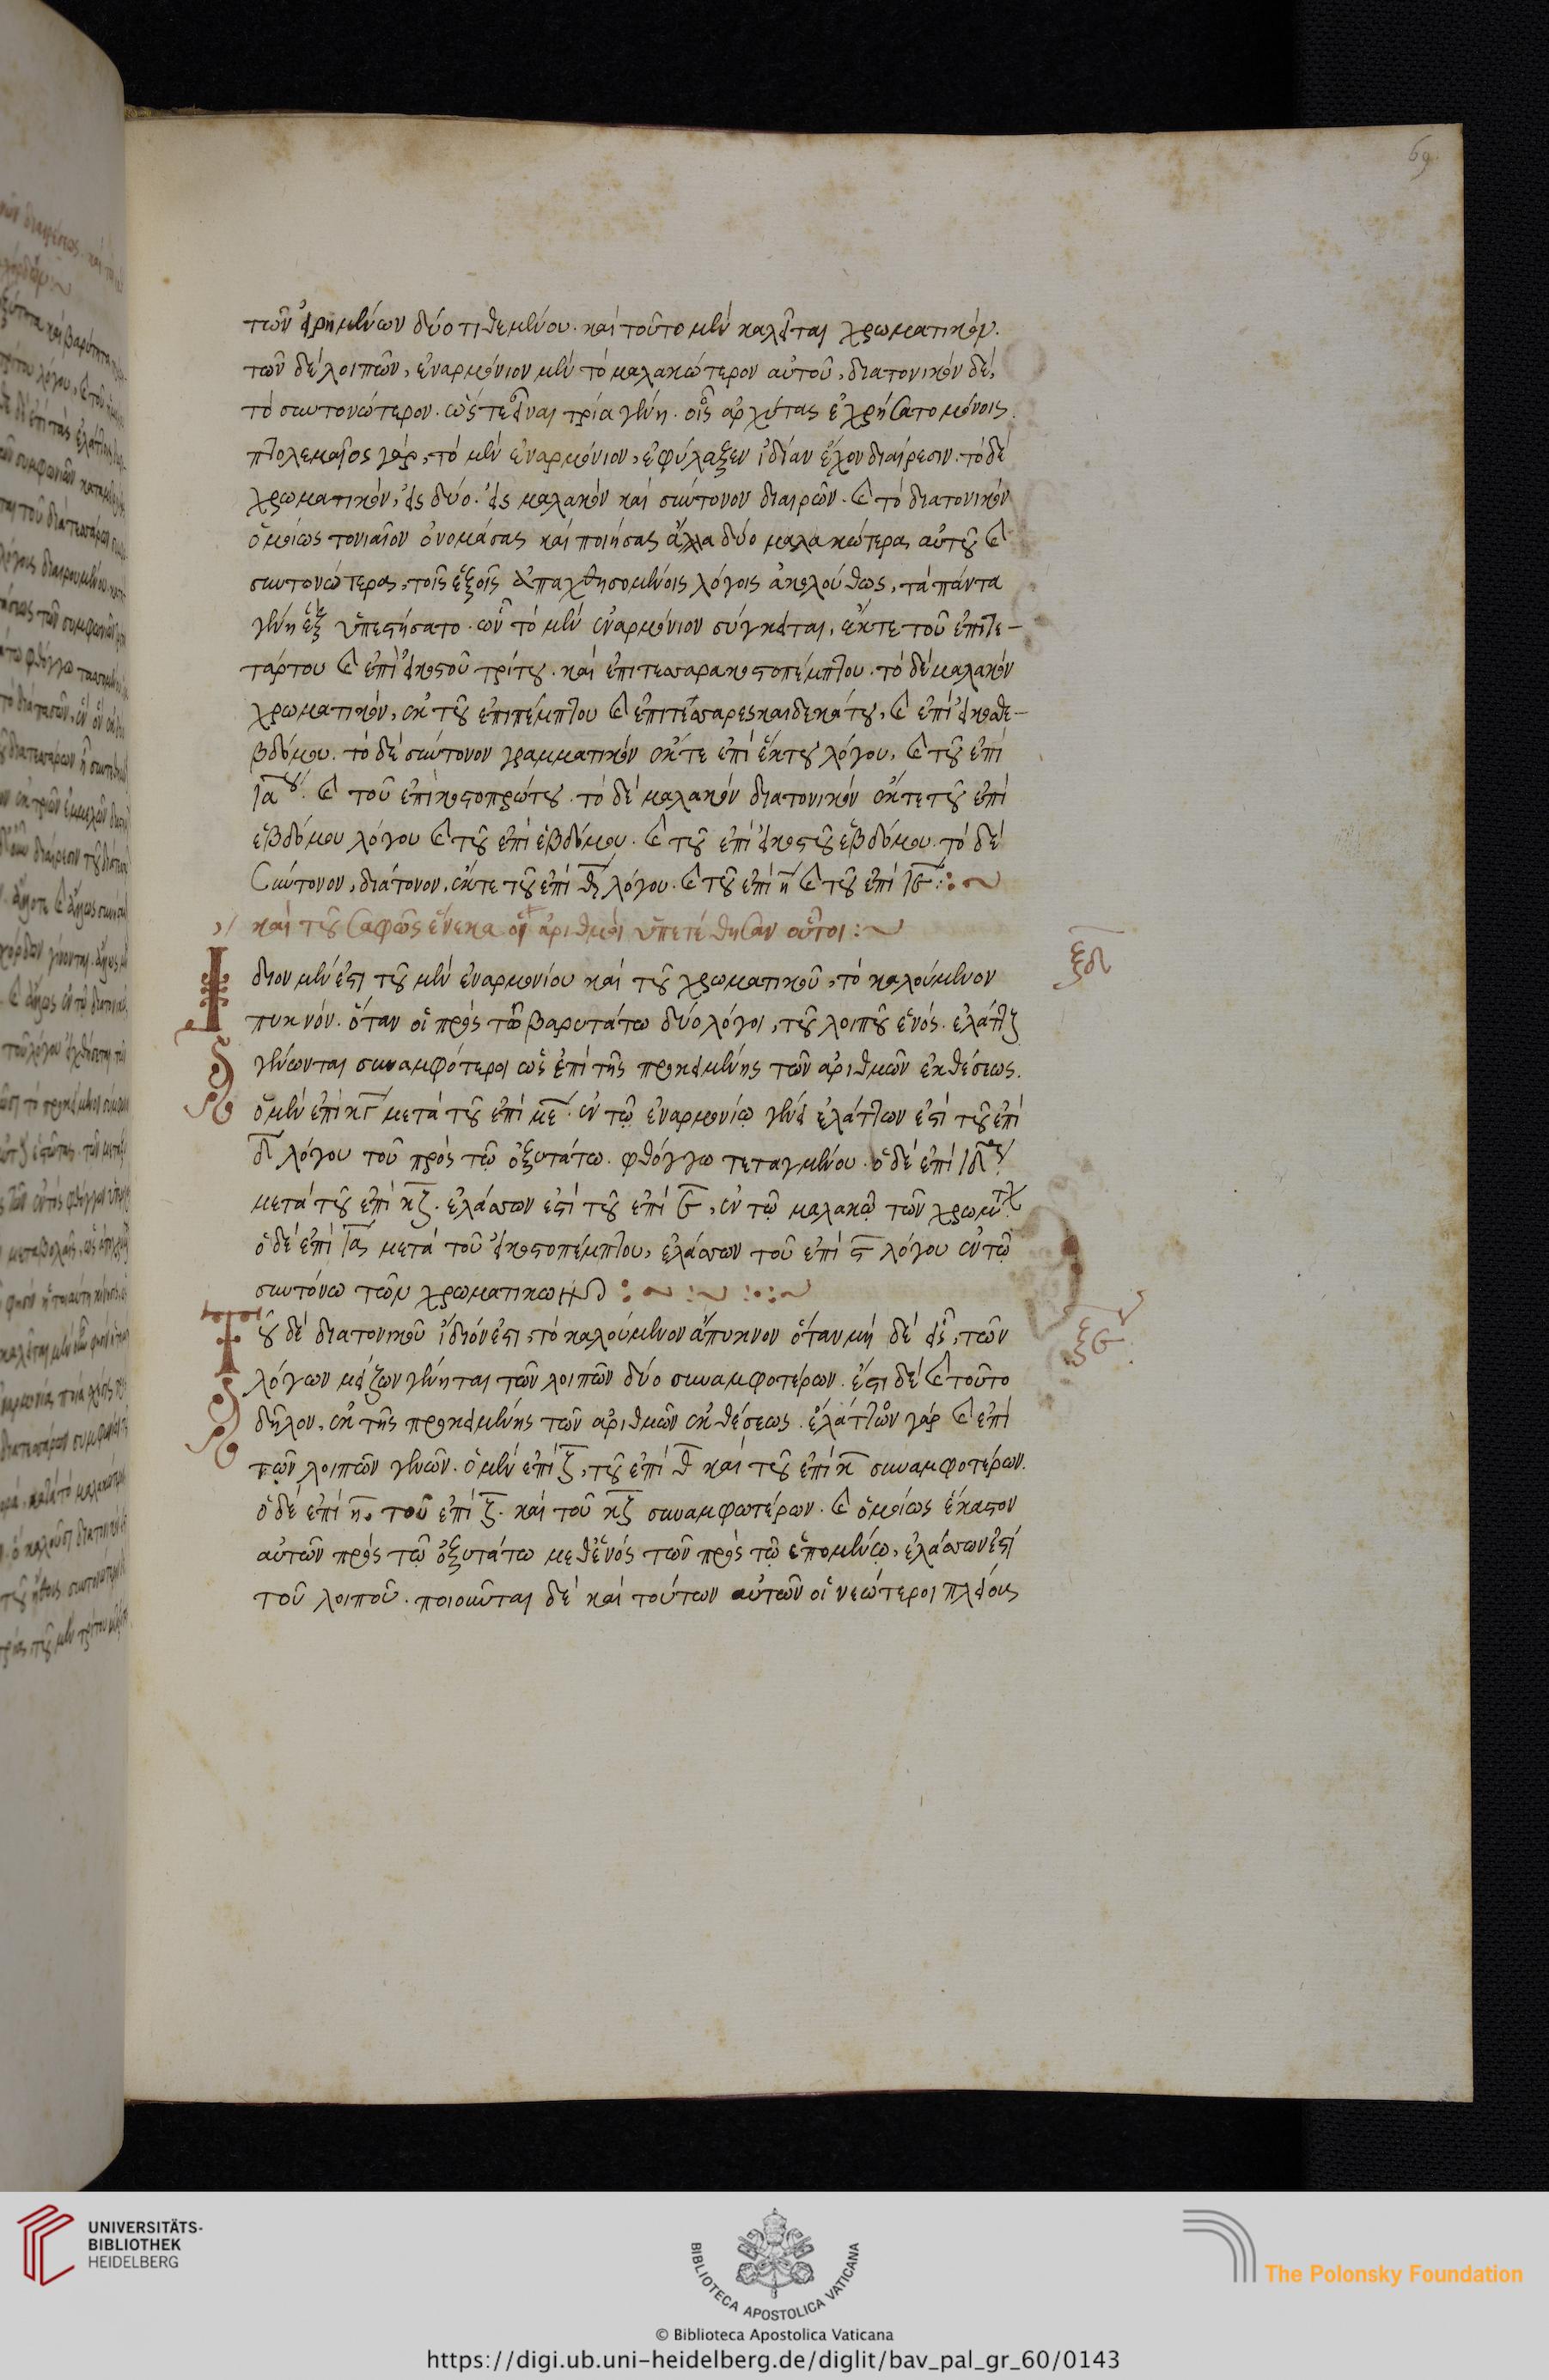 69
τῶν εἰρημένων δύο τιθεμένου. καὶ τοῦτο μὲν καλεῖται χρωματικόν.
τῶν δὲ λοιπῶν, ἐναρμόνιον μὲν τὸ μαλακώτερον αὐτοῦ, διατονικὸν δὲ,
τὸ συντονώτερον. ὥστε εἶναι τρία γένη. οἷς ἀρχύτας ἐχρήσατο μόνοις.
πτολεμαῖος γὰρ, τὸ μὲν ἐναρμόνιον, ἐφύλαξεν ἰδίαν ἔχον διαίρεσιν. τὸ δὲ
χρωματικὸν, εἰς δύο. εἰς μαλακὸν καὶ σύντονον διαιρῶν. καὶ τὸ διατονικὸν
ὁμοίως τονιαῖον ὀνομάσας καὶ ποιήσας ἄλλα δύο μαλακώτερα αὐτοῦ καὶ
συντονώτερα, τοῖς ἑξῆς ἐπαχθησομένοις λόγοις ἀκολούθως, τὰ πάντα
γένη ἓξ ὑπεστήσατο. ὧν τὸ μὲν ἐναρμόνιον σύγκειται, ἔκ τε τοῦ ἐπιτε-
τάρτου καὶ ἐπὶ εἰκοστοῦ τρίτου. καὶ ἐπιτεσσαρακοστοπέμπτου. τὸ δὲ μαλακὸν
χρωματικὸν, ἐκ τοῦ ἐπιπέμπτου καὶ ἐπιτεσσαρεσκαιδεκάτου, καὶ ἐπὶ εἰκοσθε-
βδόμου. τὸ δὲ σύντονον γραμματικὸν ἔκ τε ἐπὶ ἕκτου λόγου, καὶ τοῦ ἐπὶ
ιαου. καὶ τοῦ ἐπικοστοπρώτου. τὸ δὲ μαλακὸν διατονικὸν ἔκ τε τοῦ ἐπὶ
ἑβδόμου λόγου καὶ τοῦ ἐπὶ ἑβδόμου. καὶ τοῦ ἐπὶ εἰκοστοῦ ἑβδόμου. τὸ δὲ
σύντονον, διάτονον, ἔκ τε τοῦ ἐπὶ θ λόγου. καὶ τοῦ ἐπὶ η καὶ τοῦ ἐπὶ ιε:~
καὶ τοῦ σαφῶς ἕνεκα οἱ ἀριθμοὶ ὑπετέθησαν οὗτοι:~
ξδ
Ἴδιον μὲν ἐστι τοῦ μὲν ἐναρμονίου καὶ τοῦ χρωματικοῦ, τὸ καλούμενον
πυκνόν. ὅταν οἱ πρὸς τῶ βαρυτάτω δύο λόγοι, τοῦ λοιποῦ ἑνὸς. ἐλάττους
γένωνται συναμφότεροι ὡς ἐπὶ τῆς προκειμένης τῶν ἀριθμῶν ἐκθέσεως.
ὁ μὲν ἐπὶ κγ μετὰ τοῦ ἐπὶ με. ἐν τῷ ἐναρμονίῳ γένει ἐλάττων ἐστὶ τοῦ ἐπὶ
δ λόγου τοῦ πρὸς τῷ ὀξυτάτω. φθόγγω τεταγμένου. ὁ δὲ ἐπὶ ιδ
μετὰ τοῦ ἐπὶ κζ. ἐλάσσων ἐστὶ τοῦ ἐπὶ ε, ἐν τῷ μαλακῷ τῶν χρωματικ
ὁ δὲ ἐπὶ ια μετὰ τοῦ εἰκοστοπέμπτου, ἐλάσσων τοῦ ἐπὶ ϛ λόγου ἐν τῷ
συντόνω τῶν χρωματικων :~ :~ :·:~
ξε
Τοῦ δὲ διατονικοῦ ἴδιόν ἐστι, τὸ καλούμενον ἄπυκνον ὅταν μὴ δὲ εἷς, τῶν
λόγων μείζων γένηται τῶν λοιπῶν δύο συναμφοτέρων. ἔστι δὲ καὶ τοῦτο
δῆλον, ἐκ τῆς προκειμένης τῶν ἀριθμῶν ἐκθέσεως. ἐλάττων γὰρ καὶ ἐπὶ
τῶν λοιπῶν γενῶν. ὁ μὲν ἐπὶ ζ, τοῦ ἐπὶ θ καὶ τοῦ ἐπὶ κ συναμφοτέρων.
ὁ δὲ ἐπὶ η. τοῦ ἐπὶ ζ. καὶ τοῦ κζ συναμφωτέρων. καὶ ὁμοίως ἕκαστον
αὐτῶν πρὸς τῷ ὀξυτάτω μεθ' ἑνὸς τῶν πρὸς τῷ ἑπομένῳ, ἐλάσσων ἐστὶ
τοῦ λοιποῦ. ποιοῦνται δὲ καὶ τούτων αὐτῶν οἱ νεώτεροι πλείους
UNIVERSITÄTS-
BIBLIOTHEK
HEIDELBERG
BIBLIOTECA APOSTOLICA VATICANA
The Polonsky Foundation
© Biblioteca Apostolica Vaticana
https://digi.ub.uni-heidelberg.de/diglit/bav_pal_gr_60/0143